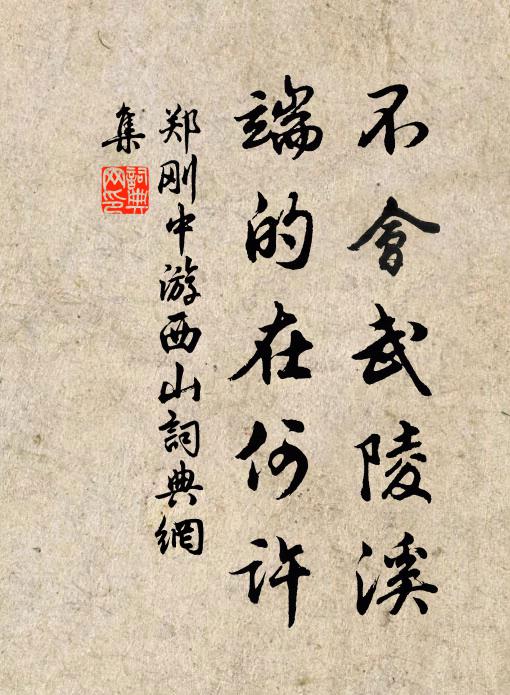 不會武陵溪
端的在何許
郑刚中游西山詞典網
集
詞典网印